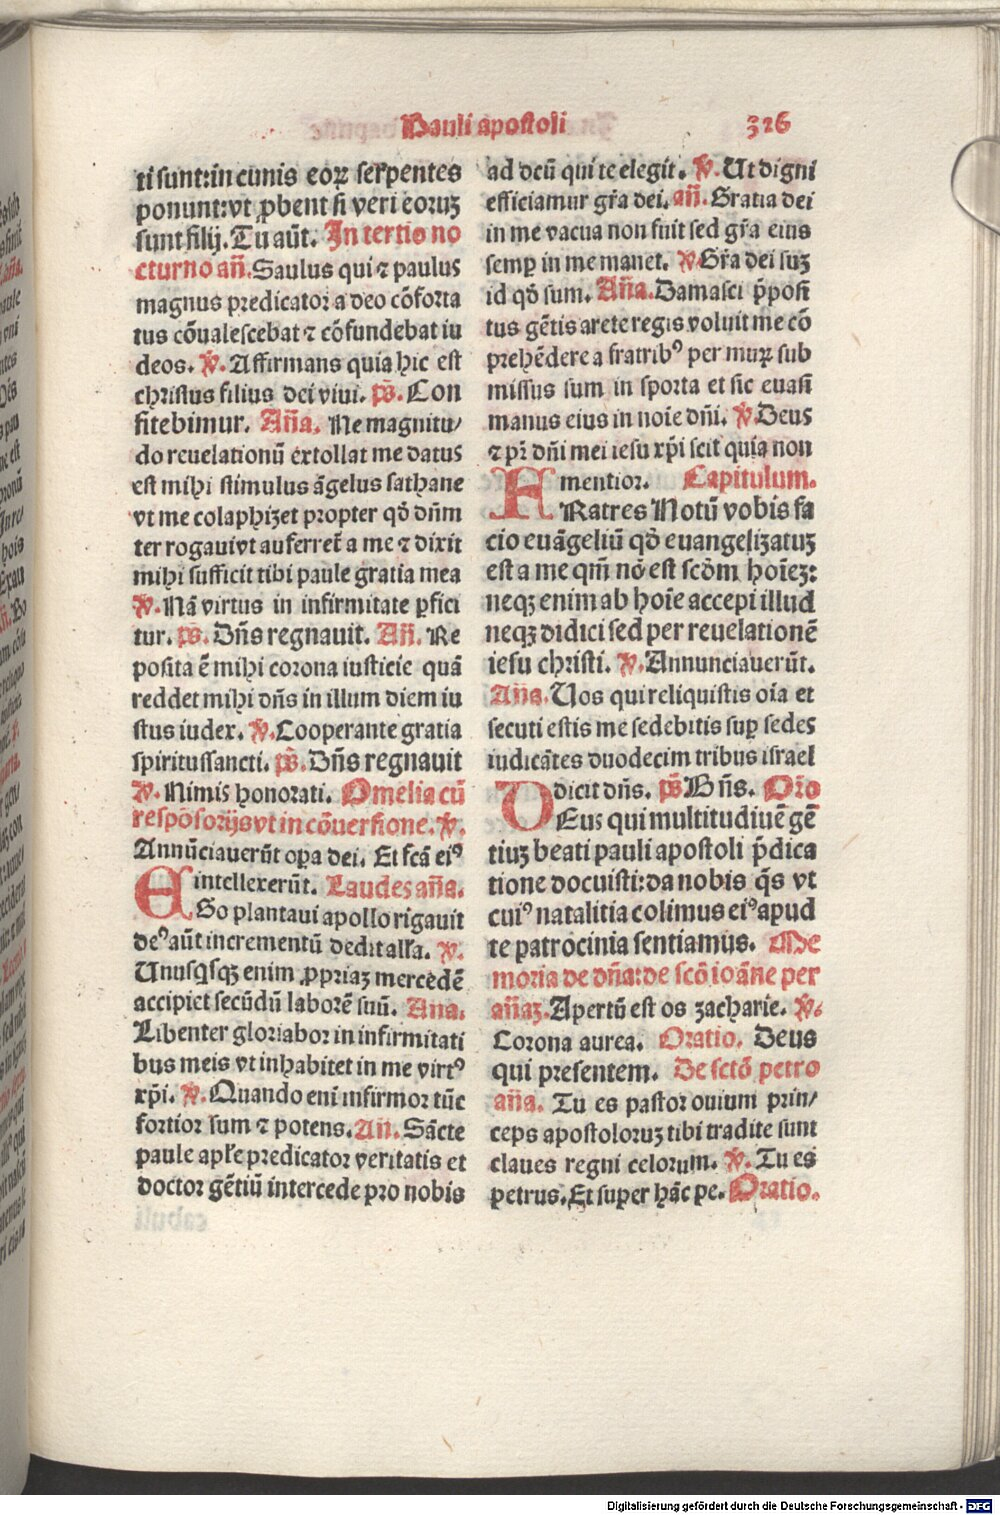 Pauli apostoli 326
ti sunt: in cunis eoꝝ serpentes
ponunt: vt ꝓbent si veri eoruꝫ
sunt filij. Tu aūt. In tertio no
cturno añ. Saulus qui ⁊ paulus
magnus predicator a deo cōforta
tus cōualescebat ⁊ cōfundebat iu
deos. ℣. Affirmans quia hic est
christus filius dei viui. p̄s. Con
fitebimur. Aña. Ne magnitu⸗
do reuelationū extollat me datus
est mihi stimulus āgelus sathane
vt me colaphizet propter qđ dñm
ter rogaui vt auferret̄ a me ⁊ dixit
mihi sufficit tibi paule gratia mea
℣. Nā virtus in infirmitate ꝑfici
tur. p̄s. Dñs regnauit. Añ. Re
posita ē mihi corona iusticie quā
reddet mihi dñs in illum diem iu
stus iudex. ℣. Cooperante gratia
spiritussancti. p̄s. Dñs regnauit
℣. Nimis honorati. Omelia cū
respōsorijs vt in cōuersione. ℣.
Annūciauerūt oꝑa dei. Et fcā eiꝰ
intellexerūt. Laudes aña.
EGo plantaui apollo rigauit
deꝰ aūt incrementū dedit alľa. ℣.
Unusqsqꝫ enim ꝓpriaꝫ mercedē
accipiet secūdū laborē suū. Ana.
Libenter gloriabor in infirmitati
bus meis vt inhabitet in me virtꝰ
xp̄i. ℣. Quando eni infirmor tūc
fortior sum ⁊ potens. Añ. Sācte
paule apľe predicator veritatis et
doctor gētiū intercede pro nobis
ad deū qui te elegit. ℣. Ut digni
efficiamur gr̄a dei. añ. Gratia dei
in me vacua non fuit sed gr̄a eius
semꝑ in me manet. ℣. Gr̄a dei suꝫ
id qđ sum. Aña. Damasci p̄posi
tus gētis arete regis voluit me cō
prehēdere a fratribꝰ per muꝝ sub
missus sum in sporta et sic euasi
manus eius in noīe dñi. ℣. Deus
⁊ pr̄ dñi mei iesu xp̄i scit quia non
mentior. Capitulum.
FRatres Notū vobis fa
cio euāgeliū qđ euangelizatuꝫ
est a me qm̄ nō est scđm hoīeꝫ:
neqꝫ enim ab hoīe accepi illud
neqꝫ didici sed per reuelationē
iesu christi. ℣. Annunciauerūt.
Aña. Uos qui reliquistis oīa et
secuti estis me sedebitis suꝑ sedes
iudicātes duodecim tribus israel
dicit dñs. p̄s Bñs. Oro
DEus qui multitudinē gē
tiuꝫ beati pauli apostoli p̄dica
tione docuisti: da nobis q̄s vt
cuiꝰ natalitia colimus eiꝰ apud
te patrocinia sentiamus. Me
moria de dña: de scō ioāne per
añaꝫ. Apertū est os zacharie. ℣.
Corona aurea. Oratio. Deus
qui presentem. De sctō petro
aña. Tu es pastor ouium prin⸗
ceps apostoloruꝫ tibi tradite sunt
claues regni celorum. ℣. Tu es
petrus. Et super hāc pe. Oratio.
Digitalisierung gefördert durch die Deutsche Forschungsgemeinschaft - DFG